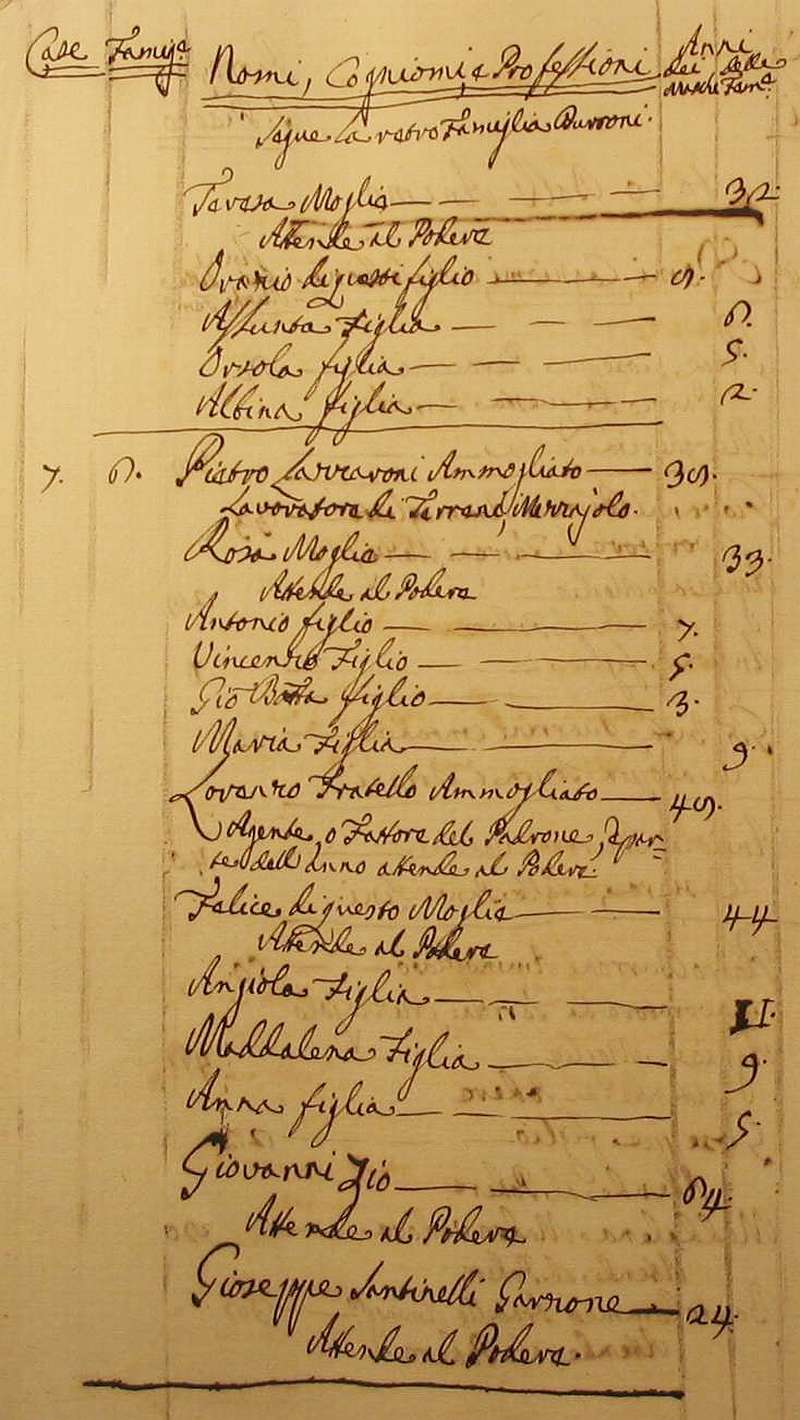 Case Famigª Nomi, Cogniomi, e Professioni Anni
dei delle
Maschi Femª
Segue la retro Famiglia Burroni.
Teresa Moglie 32.
Attende al Podere
Orazio di questi figlio 9.
Assunta Figlia 6.
Orsola figlia 5.
Albina figlia 2.
7. 6. Pietro Lazzaroni Ammogliato 39.
Lavoratore di Terreni, Mezzajolo.
Rosa Moglie 33.
Attende al Podere
Antonio figlio 7.
Vincenzio Figlio 5.
Gio Batta figlio 3.
Maria Figlia 9.
Lorenzo Fratello Ammogliato 49.
Agente, o Fattore del Padrone, e par=
te dell'anno attende al Podere.
Felice di questo Moglie 44
Attende al Podere
Angiola Figlia 11.
Maddalena Figlia 9.
Anna figlia 5.
Giovanni Zio 64.
Attende al Podere
Gioseppe Santinelli Garzone 24.
Attende al Podere.